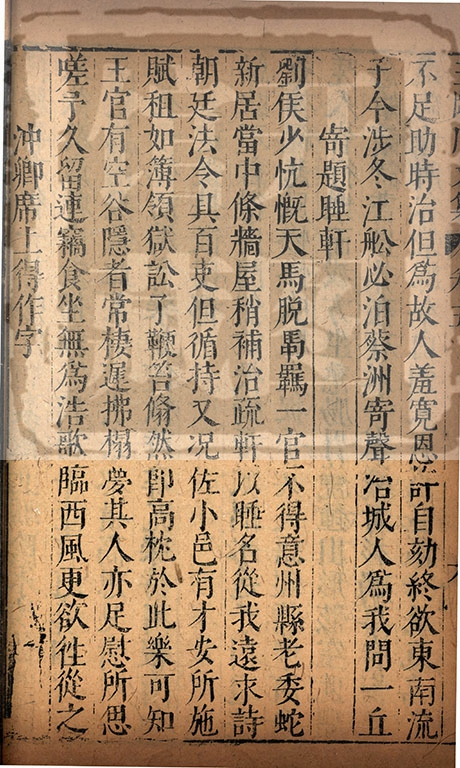 不足助時治但爲故人羞寬恩許自刻終欲東南流
子今涉冬江舩必泊蔡洲寄聲冶城人爲我問一丘
寄題睡軒
劉侯少忼慨天馬脱馽羈一官不得意州縣老委蛇
新居當中條牆屋稍補治疏軒以睡名從我遠求詩
朝廷法令具百吏但循持又况佐小邑有才安所施
賦租如簿領獄訟了鞭笞翛然即高枕於此樂可知
王官有空谷隱者常棲遲拂榻夢其人亦足慰所思
嗟予久留連竊食坐無爲浩歌臨西風更欲徃從之
沖卿席上得作字